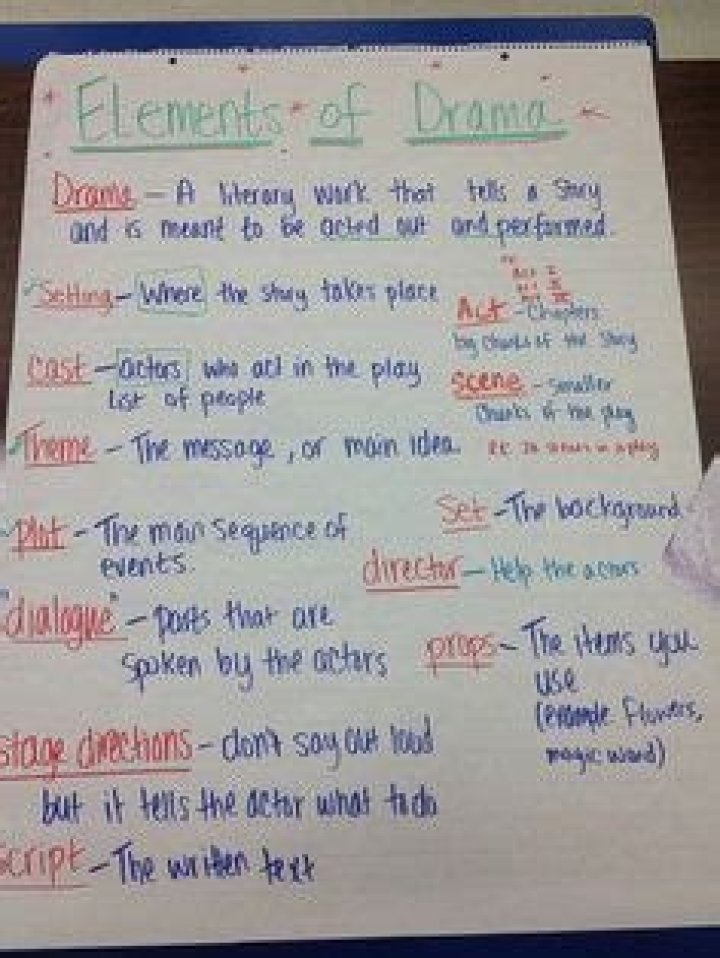 Elements of Drama
Drama - A literary work that tells a story
and is meant to be acted out and performed.
Setting - Where the story takes place
Act I
II
III
Act - Chapters
big chunks of the story
Cast - actors who act in the play
List of people
Scene - smaller
Chunks of the play
Theme - The message, or main idea.
Set - The background
Plot - The main sequence of
events.
director - Help the actors
"dialogue" - parts that are
spoken by the actors
props - The items you
use
(example Flowers,
magic wand)
stage directions - don't say out loud
but it tells the actor what to do
script - The written text